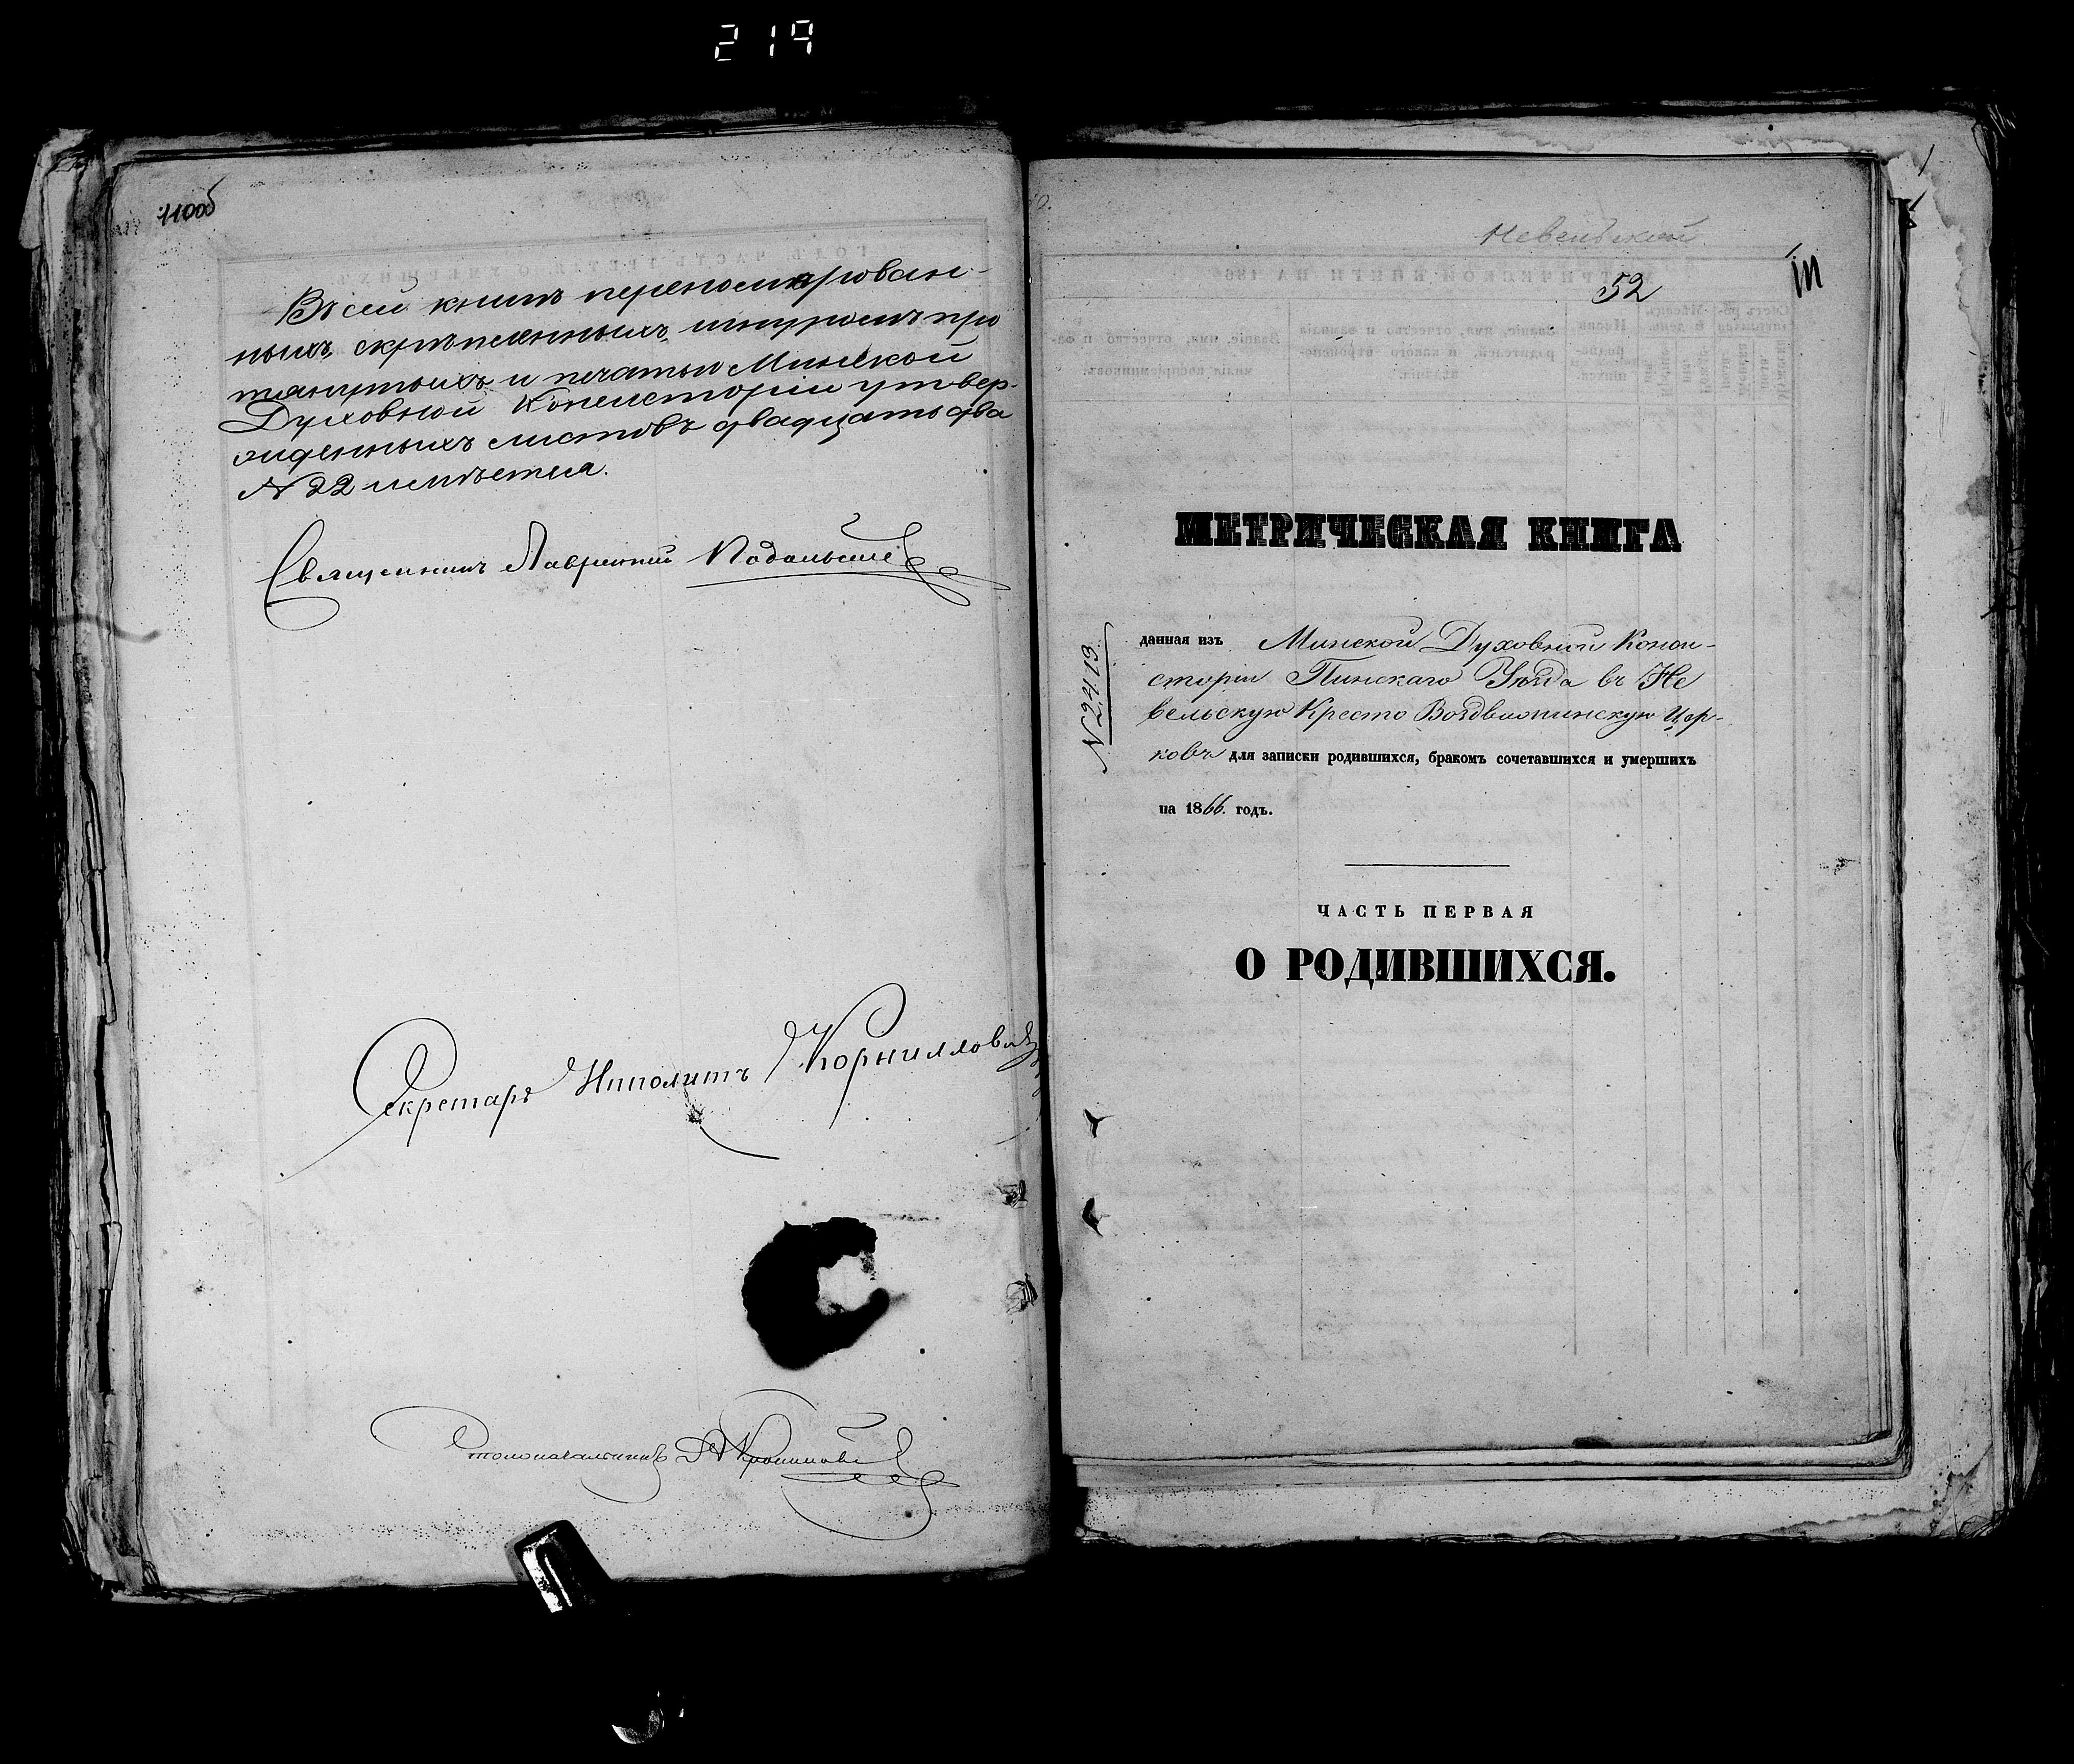 219
110об
Въ сей книгѣ перенумерован-
ныхъ, скрѣпленныхъ, шнуромъ про
тянутыхъ и печатью Минской
Духовной Консисторіи утвер-
жденныхъ листовъ двадцать два
№ 22 имѣется.
Священникъ Лаврентій Подольскій
Секретарь Иполитъ Корниллович
Столоначальникъ
Невельской
52
111
МЕТРИЧЕСКАЯ КНИГА
№ 2413
данная изъ Минской Духовной Конси-
сторіи Пинскаго Уѣзда въ Не
вельскую Кресто Воздвиженскую Цер-
ковь для записки родившихся, бракомъ сочетавшихся и умершихъ
на 1866. годъ.
ЧАСТЬ ПЕРВАЯ
О РОДИВШИХСЯ.